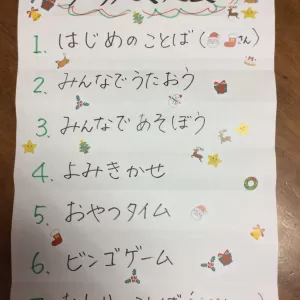 1. はじめのことば(さん)
2. みんなでうたおう
3. みんなであそぼう
4. よみきかせ
5. おやつタイム
6. ビンゴゲーム